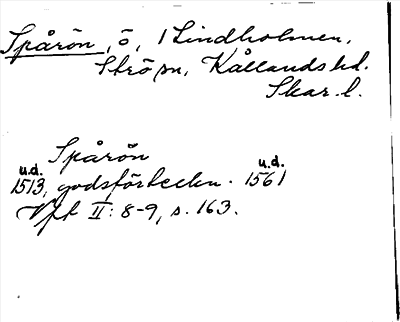 Spårön, ö, 1 Lindholmen,
Strö sn, Kållands hd.
Skar. l.
Spårön
u.d. u.d.
1513, godsförteckn. 1561
Vft II: 8-9, s. 163.